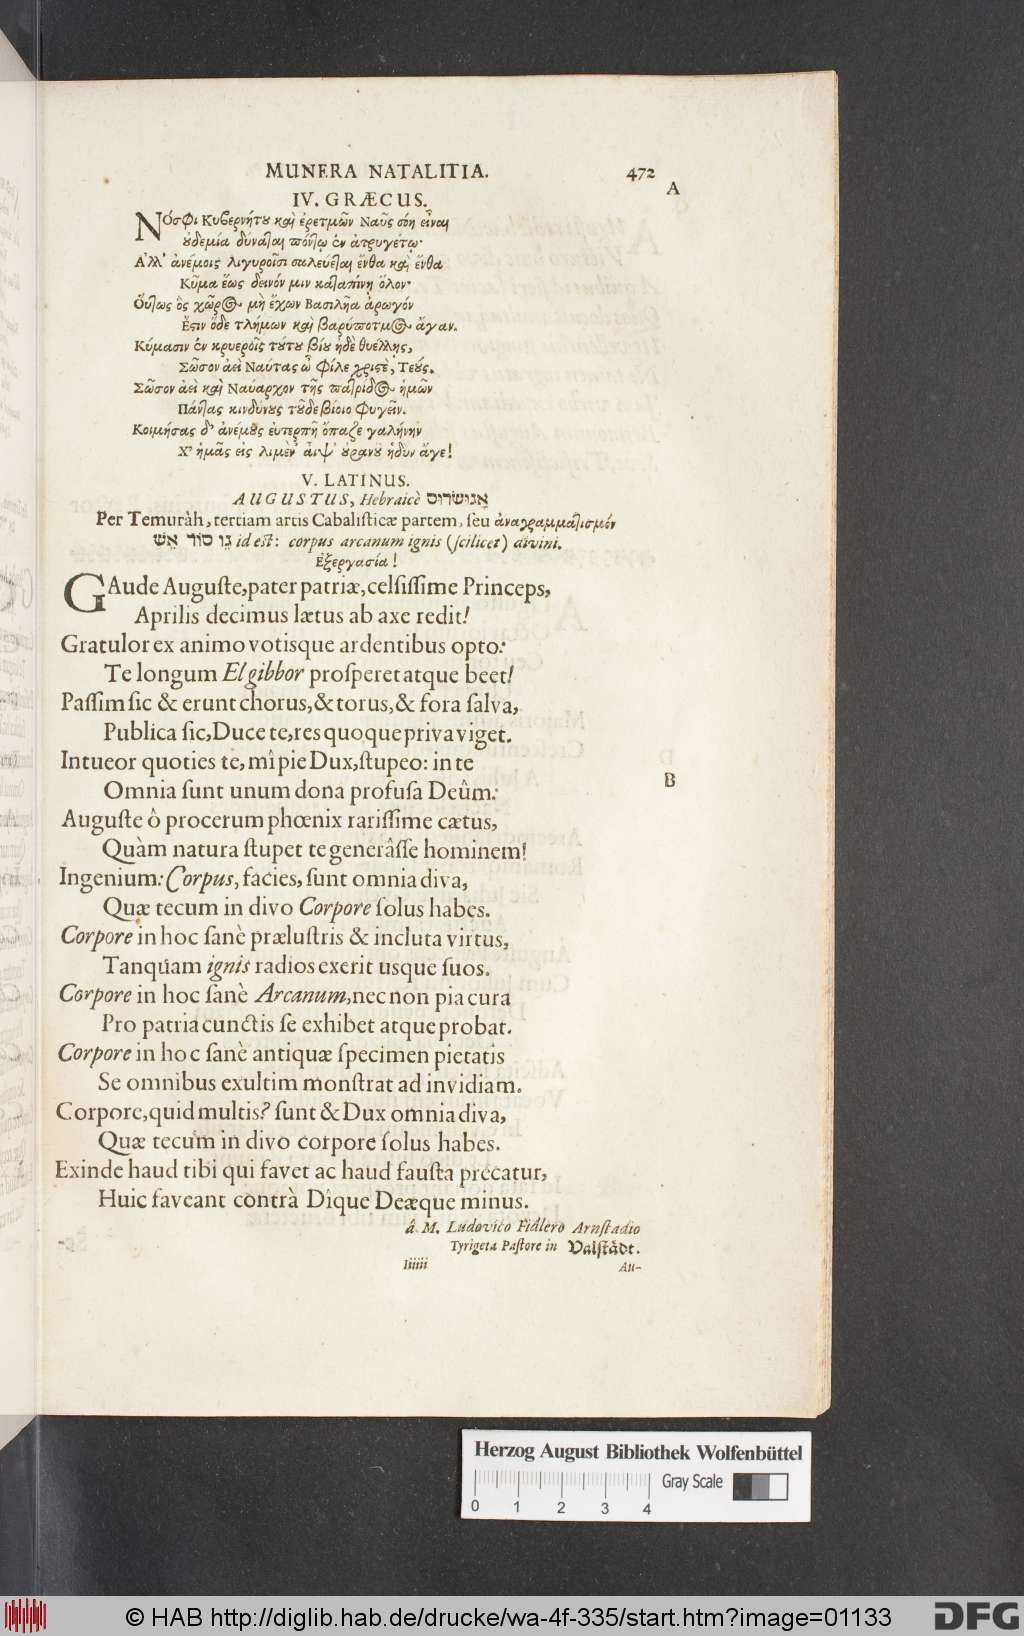 MUNERA NATALITIA. 472
A
IV. GRÆCUS.
Νόσφι Κυβερνήτου καὶ ἐρετμῶν Ναῦς σόη εἶναι
οὐδεμία δύναται πόντῳ ἐν ἀτρυγέτῳ·
Ἀλλ' ἀνέμοις λιγυροῖσι σαλεύεται ἔνθα καὶ ἔνθα
Κῦμα ἕως δεινόν μιν καταπίνῃ ὅλον·
Οὕτως ὃς χῶρος μὴ ἔχων Βασιλῆα ἀρωγόν
Ἔστιν ὅδε τλήμων καὶ βαρύποτμος ἄγαν.
Κύμασιν ἐν κρυεροῖς τούτου βίου ἠδὲ θυέλλης,
Σῶσον ἀεὶ Ναύτας ὦ φίλε χριστὲ, Τεούς.
Σῶσον ἀεὶ καὶ Ναύαρχον τῆς πατρίδος ἡμῶν
Πάντας κινδύνους τοῦδε βίοιο φυγεῖν.
Κοιμήσας δ' ἀνέμους εὐτερπῆ ὄπαζε γαλήνην
Χ' ἡμᾶς εἰς λιμὲν' αἶψ' οὐρανοῦ ἡδὺν ἄγε!
V. LATINUS.
AUGUSTUS, Hebraicè אֲגוּשְׂרוּס
Per Temuràh, tertiam artis Cabalisticæ partem, seu ἀναγραμματισμόν
גֵּו סוֹד אֵשׁ id est: corpus arcanum ignis (scilicet) divini.
Ἐξεργασία!
GAude Auguste, pater patriæ, celsissime Princeps,
Aprilis decimus lætus ab axe redit!
Gratulor ex animo votisque ardentibus opto:
Te longum El gibbor prosperet atque beet!
Passim sic & erunt chorus, & torus, & fora salva,
Publica sic, Duce te, res quoque priva viget.
Intueor quoties te, mî pie Dux, stupeo: in te
Omnia sunt unum dona profusa Deûm:
B
Auguste ô procerum phœnix rarissime cætus,
Quàm natura stupet te generâsse hominem!
Ingenium: Corpus, facies, sunt omnia diva,
Quæ tecum in divo Corpore solus habes.
Corpore in hoc sanè prælustris & incluta virtus,
Tanquam ignis radios exerit usque suos.
Corpore in hoc sanè Arcanum, nec non pia cura
Pro patria cunctis se exhibet atque probat.
Corpore in hoc sanè antiquæ specimen pietatis
Se omnibus exultim monstrat ad invidiam.
Corpore, quid multis? sunt & Dux omnia diva,
Quæ tecum in divo corpore solus habes.
Exinde haud tibi qui favet ac haud fausta precatur,
Huic faveant contrà Dîque Deæque minus.
â M. Ludovico Fidlero Arnstadio
Tyrigeta Pastore in Valstädt.
Iiiiii Au-
Herzog August Bibliothek Wolfenbüttel
Gray Scale
0 1 2 3 4
© HAB http://diglib.hab.de/drucke/wa-4f-335/start.htm?image=01133
DFG